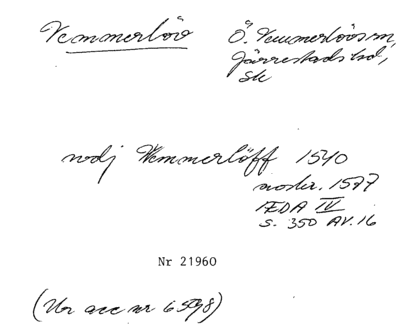 Vemmerlöv Ö. Vemmerlövs sn,
Järrestads hd,
Sk
nodj Vemmerlöff 1540
avskr. 1577
ÆDA IV
s. 350 AV. 16
Nr 21960
(Ur acc nr 6598)